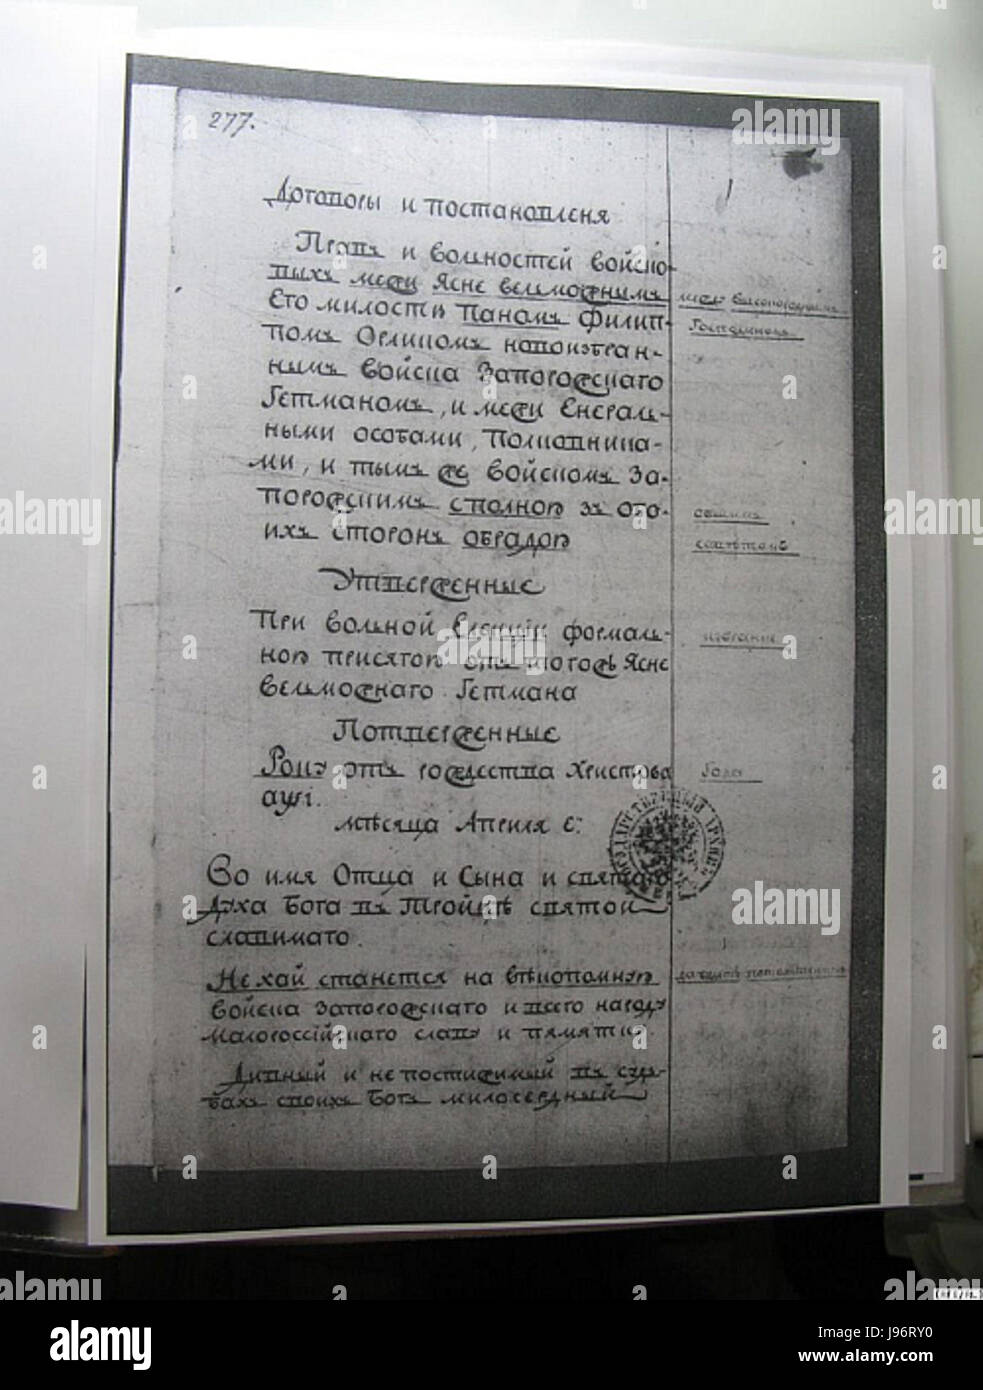 277.
Договоры и постановленя
Правъ и вольностей войско-
выхъ межи Ясне велможнымъ
Его милостю Паномъ Филип-
помъ Орликомъ новоизбран-
нымъ войска Запорожскаго
Гетманомъ, и межи Енераль-
ными особами, Полковника-
ми, и тымъ же войскомъ За-
порожскимъ сполною зъ обо-
ихъ сторонъ обрадою
Утверженные
При волной елекціи формаль-
ною присягою отъ тогожъ Ясне
велможнаго Гетмана
Потверженные
Року отъ рождества Христова
аψі.
мѣсяца Апреля е:
Во имя Отца и Сына и святаго
Духа Бога въ Тройцѣ святой
славимаго.
Нехай станется на вѣкопомную
войска Запорожскаго и всего народу
малороссійскаго славу и память
Дивный и непостижимый въ судь-
бахъ своихъ Богъ милосердный
Господиномъ
общимъ
совѣтомъ
избраніи
Года
alamy
Image ID: J96RY0
www.alamy.com